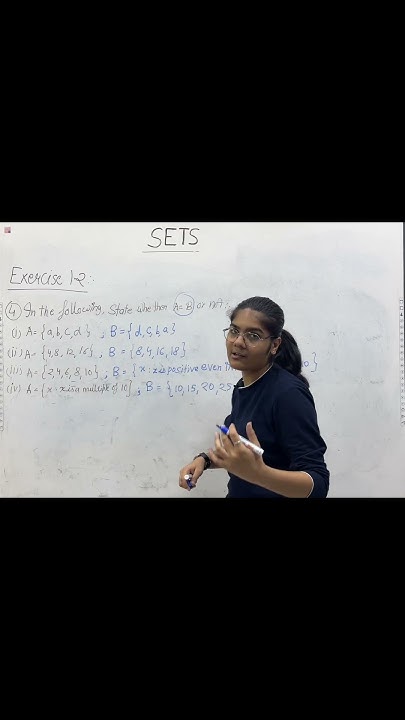 SETS
Exercise 1.2 :
④ In the following, State whether A = B or not :
(i) A = {a, b, c, d} , B = {d, c, b, a}
(ii) A = {4, 8, 12, 16} , B = {8, 4, 16, 18}
(iii) A = {2, 4, 6, 8, 10} , B = {x : x is positive even in 0}
(iv) A = {x : x is a multiple of 10} , B = {10, 15, 20, 25